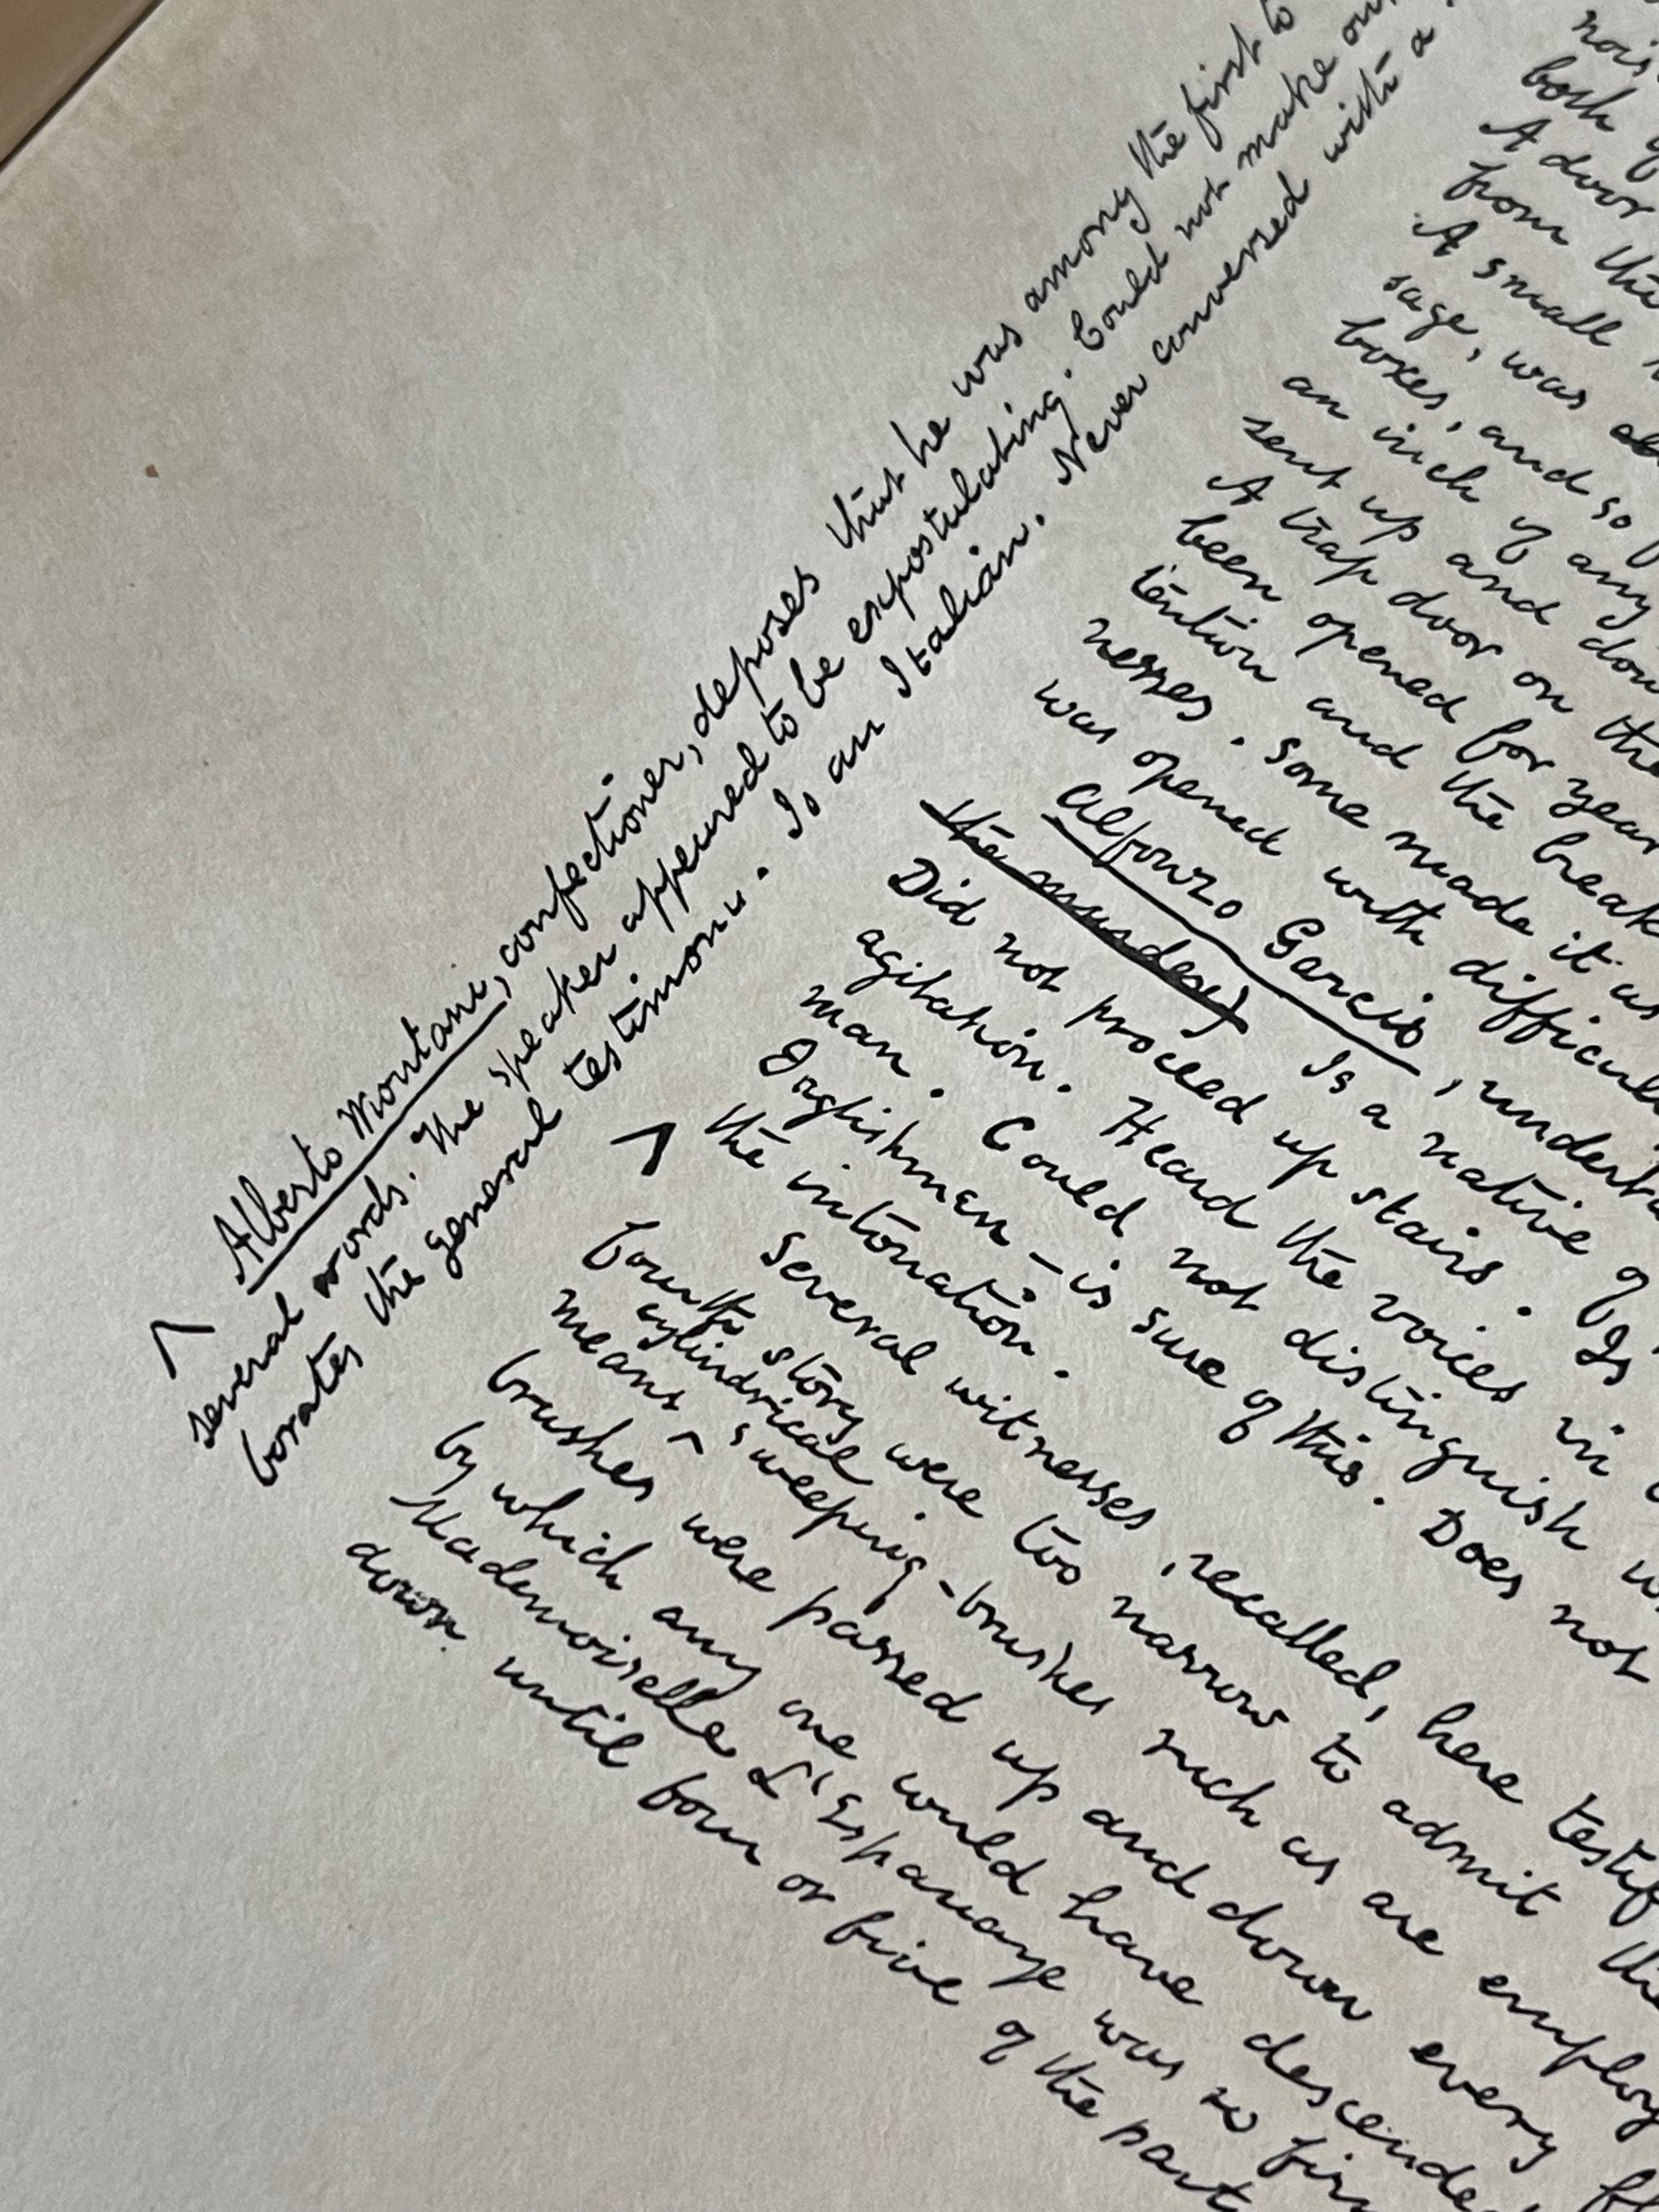 Alberto Montani, confectioner, deposes that he was among the first to
several words. The speaker appeared to be expostulating. Could not make out
borates the general testimony. Is an Italian. Never conversed with a
nois
both of
A door
from the
A small
sage, was
boxes, and so
an inch of any
sent up and down
A trap door on the
been opened for years
tention and the break
nesses. Some made it as
was opened with difficul
Alfonzo Garcio, underta
the murdered Is a native of
Did not proceed up stairs. Is
agitation. Heard the voices in
man. Could not distinguish
Englishman – is sure of this. Does not
^ the intonation.
Several witnesses, recalled, here testif
fourth story were too narrow to admit the
cylindrical
means ^ sweeping-brushes such as are employ
brushes were passed up and down every
by which any one could have descende
Mademoiselle L'Espanaye was so fir
down until four or five of the part